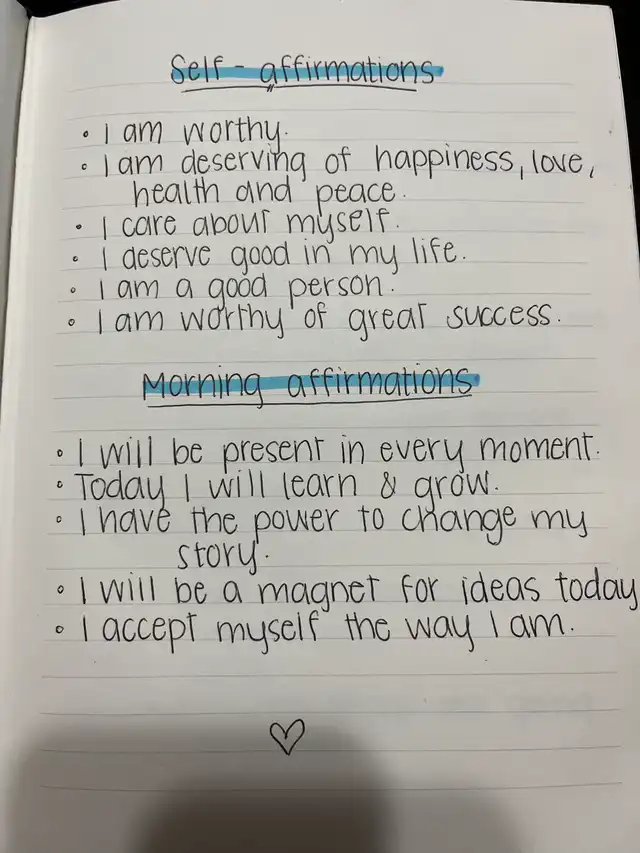 Self-affirmations
• I am worthy.
• I am deserving of happiness, love,
health and peace.
• I care about myself.
• I deserve good in my life.
• I am a good person.
• I am worthy of great success.
Morning affirmations
• I will be present in every moment.
• Today I will learn & grow.
• I have the power to change my
story.
• I will be a magnet for ideas today
• I accept myself the way I am.